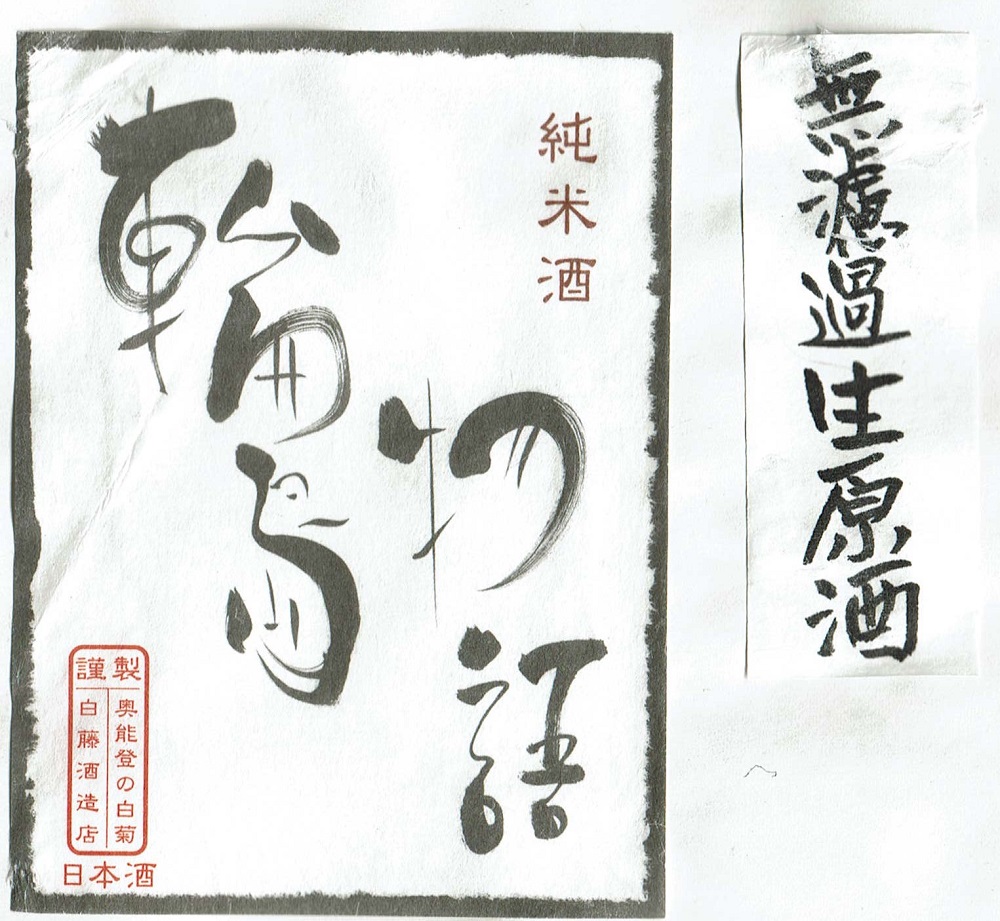 無濾過生原酒
純米酒
輪島
物語
謹製
奥能登の白菊
白藤酒造店
日本酒